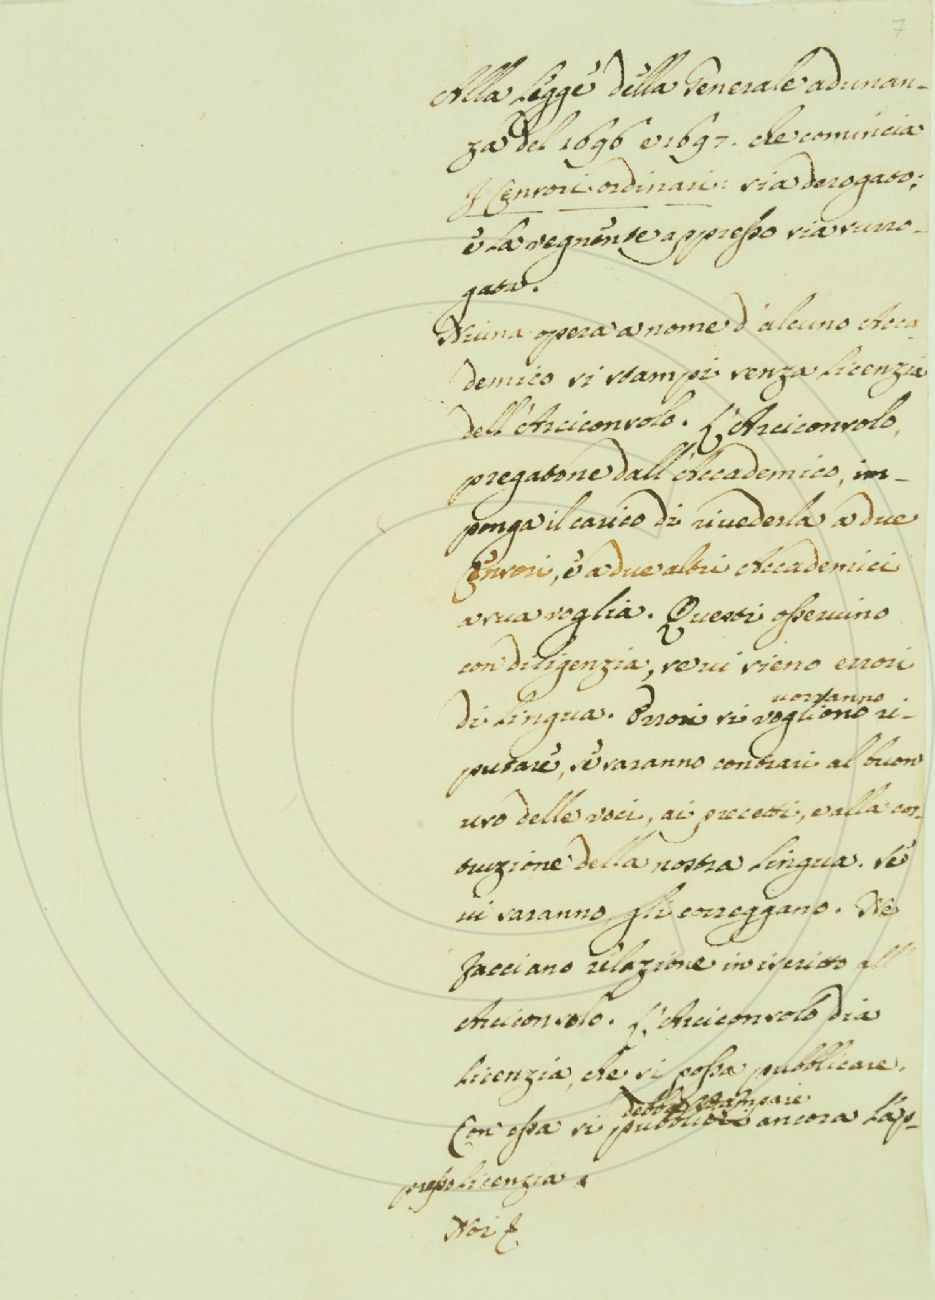 7
Alla Legge della Generale adunan-
za del 1696 e 1697. che comincia
I Censori ordinari: sia derogato;
e la seguente appresso sia surro-
gata.
Niuna opera a nome d'alcuno Acca
demico si stampi senza licenzia
dell'Arciconsolo. L'Arciconsolo,
pregatone dall'Accademico, im-
ponga il carico di rivederla a due
Censori, e a due altri Accademici
a sua voglia. Questi osservino
con diligenzia, se vi sieno errori
vorranno
di lingua. Errori si vogliono ri-
putare, se saranno contrari al buon
uso delle voci, ai precetti, e alla cos-
truzione della nostra lingua. Se
vi saranno, gli correggano. Ne
facciano relazione in iscritto all'
Arciconsolo. L'Arciconsolo dia
licenzia, che si possa pubblicare.
debba stampare
Con essa si pubblichi ancora l'ap-
presso licenzia.
Noi